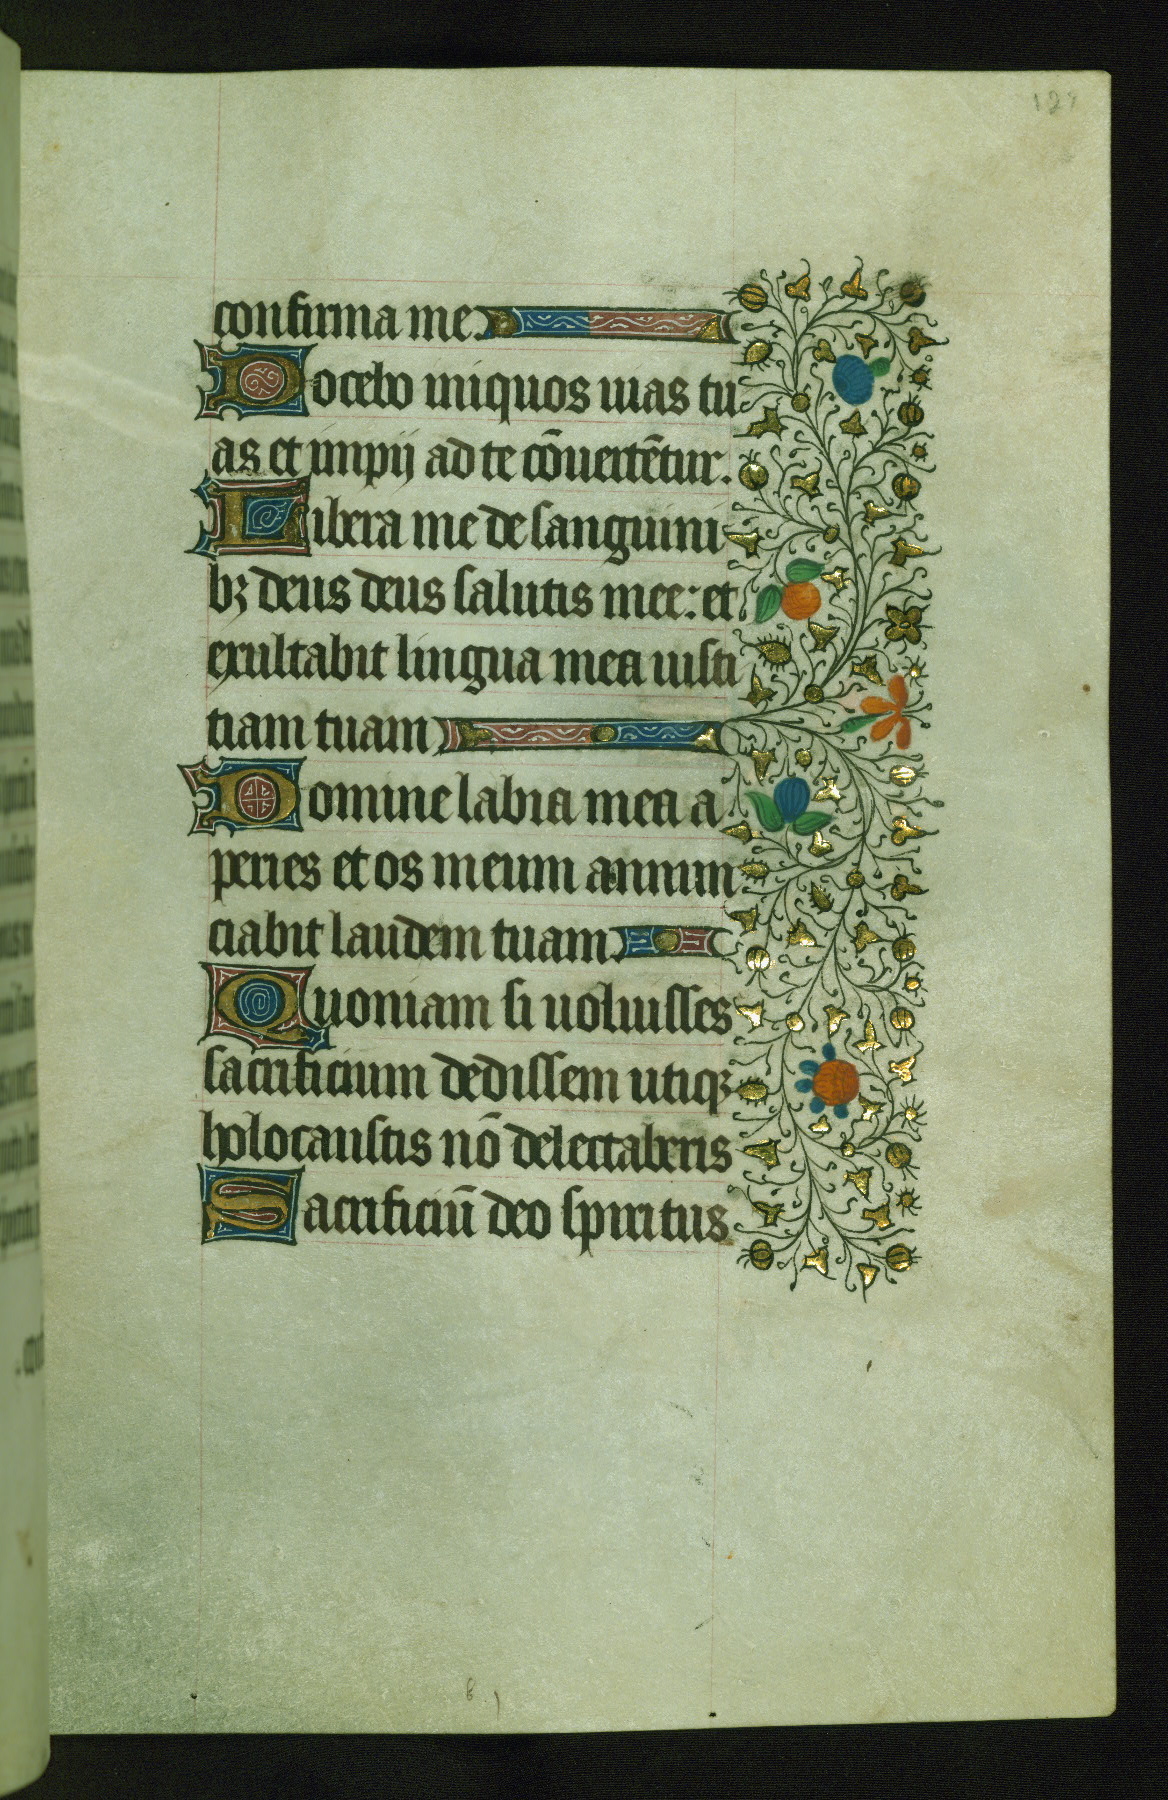 confirma me.
Docebo iniquos uias tu
as et impij ad te cōuertētur.
Libera me de sanguini
bꝫ deus deus salutis mee: et
exultabit lingua mea iusti
tiam tuam
Domine labia mea a
peries et os meum annun
ciabit laudem tuam
Quoniam si uoluisses
sacrificium dedissem utiqꝫ
holocaustis nō delectaberis
Sacrificiū deo spiritus